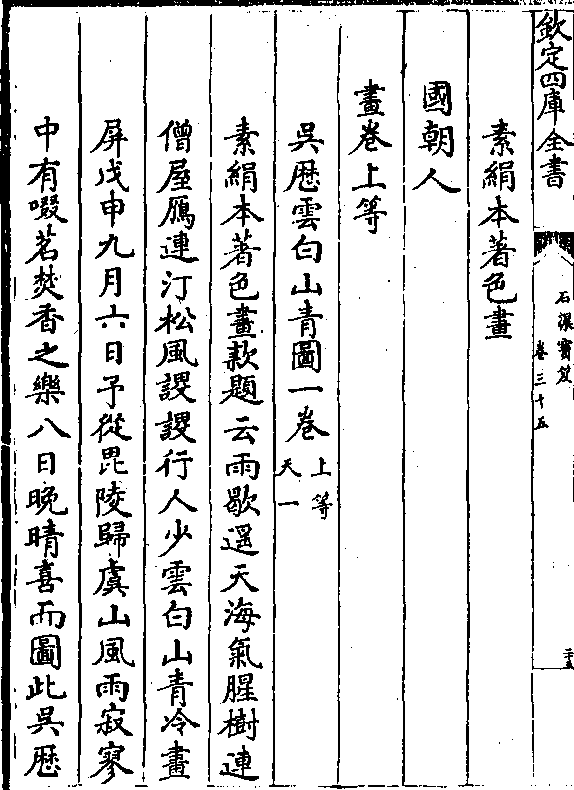 欽定四庫全書
石渠寶笈
卷三十五
二十五
素絹本著色畫
國朝人
畫卷上等
吳歴雲白山青圖一卷上等天一
素絹本著色畫款題云雨歇遥天海氣腥樹連
僧屋鴈連汀松風謖謖行人少雲白山青冷畫
屏戊申九月六日予從毘陵歸虞山風雨寂寥
中有啜茗焚香之樂八日晚晴喜而圖此吳歴